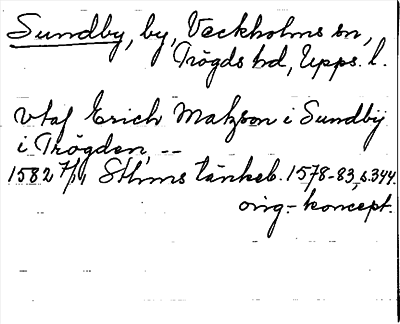 Sundby, by, Veckholms sn,
Trögds hd, Upps. l.
vtaf Erich Matzson i Sundbÿ
i Trögden, --
1582 7/11 Sthms tänkeb. 1578-83, s. 344.
orig.- koncept.